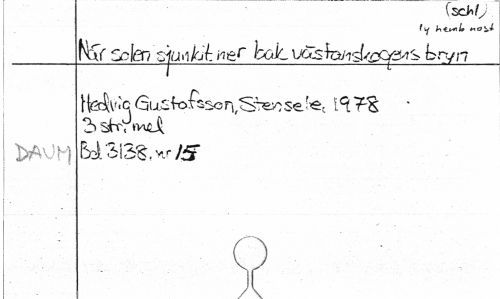 (schl)
ty hemb nost
När solen sjunkit ner bak västanskogens bryn
Hedvig Gustafsson, Stensele, 1978
3 str. mel
DAUM Bd 3138, nr 15